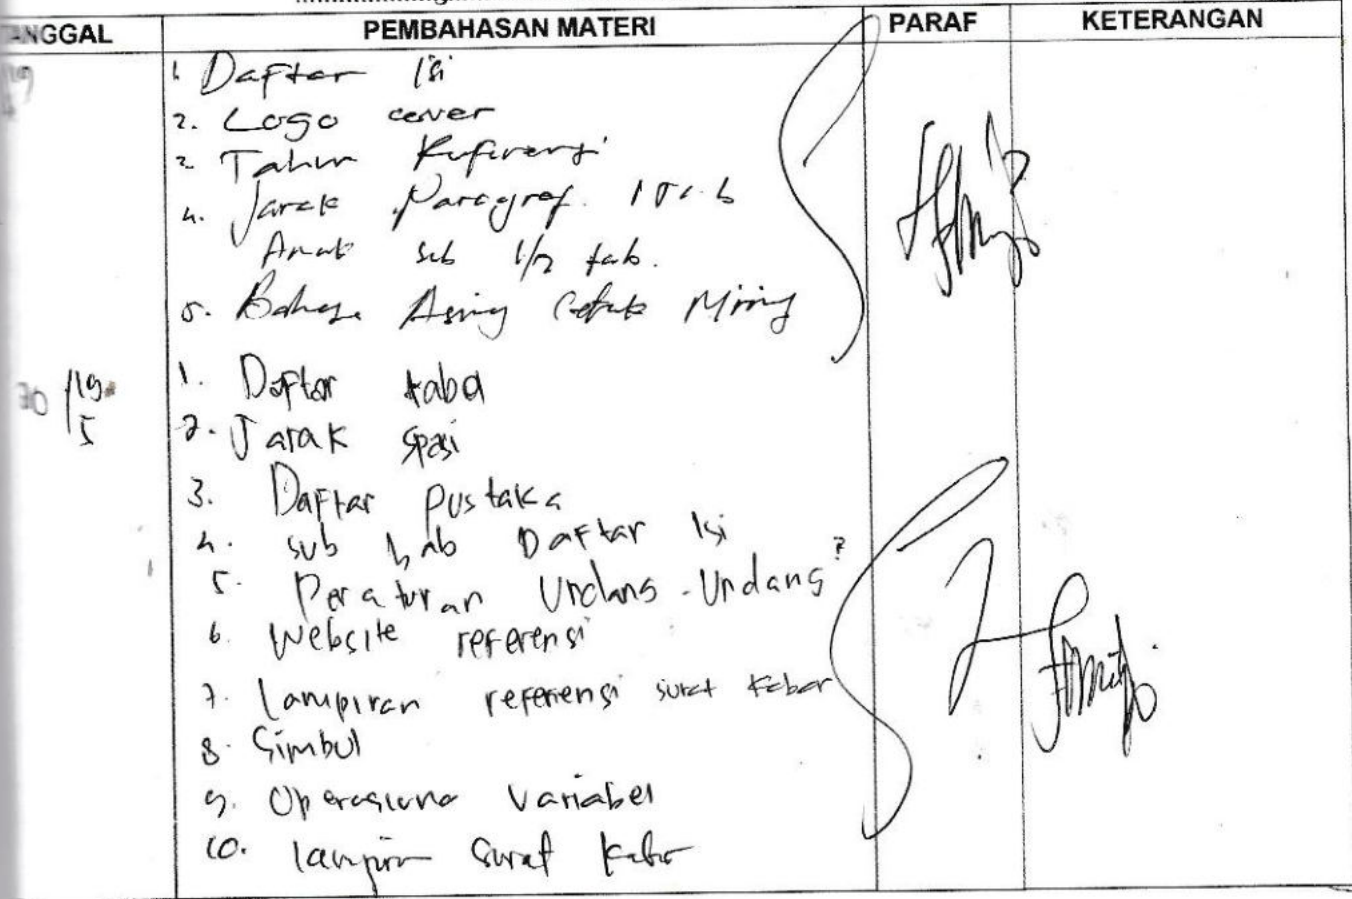 TANGGAL PEMBAHASAN MATERI PARAF KETERANGAN
1. Daftar Isi
2. Logo cover
Tahun Referensi
4. Jarak Paragraf. 1
Anak sub 1/2 tab.
5. Bahasa Asing Cetak Miring
30/19 5
1. Daftar tabel
2. Jarak spasi
3. Daftar Pustaka
4. sub bab Daftar Isi
5. Peraturan Undang-Undang?
6. Website referensi
7. Lampiran referensi surat kabar
8. Simbul
9. Operasiona Variabel
10. lampiran surat kabar